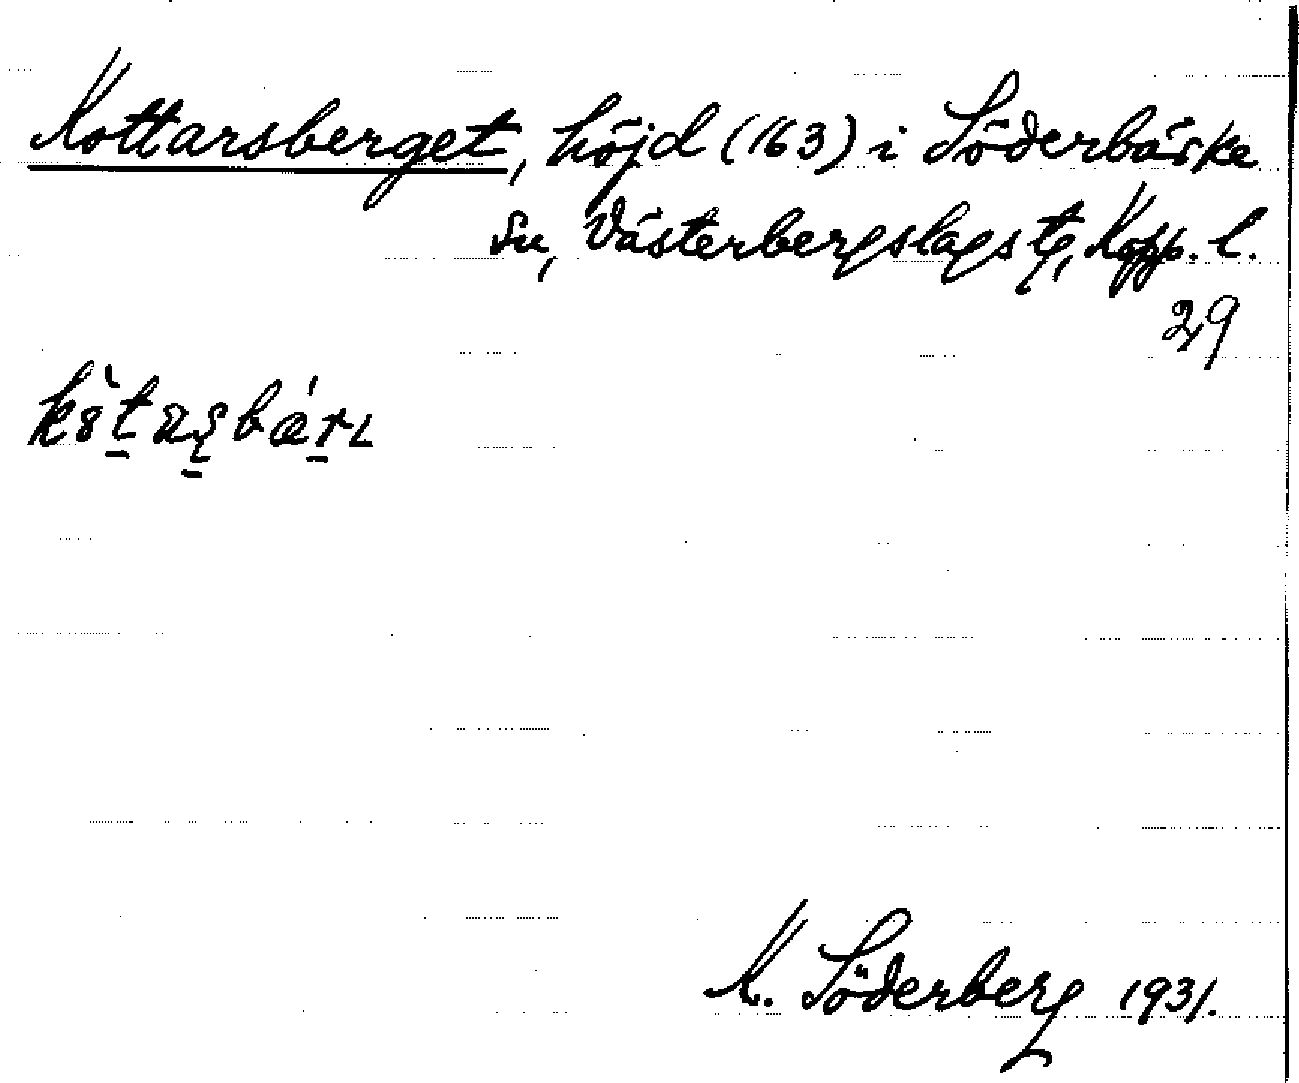 Kottarsberget, höjd (163) i Söderbärke
sn, Västerbergslags tg, Kopp. l.
29
K. Söderberg 1931.